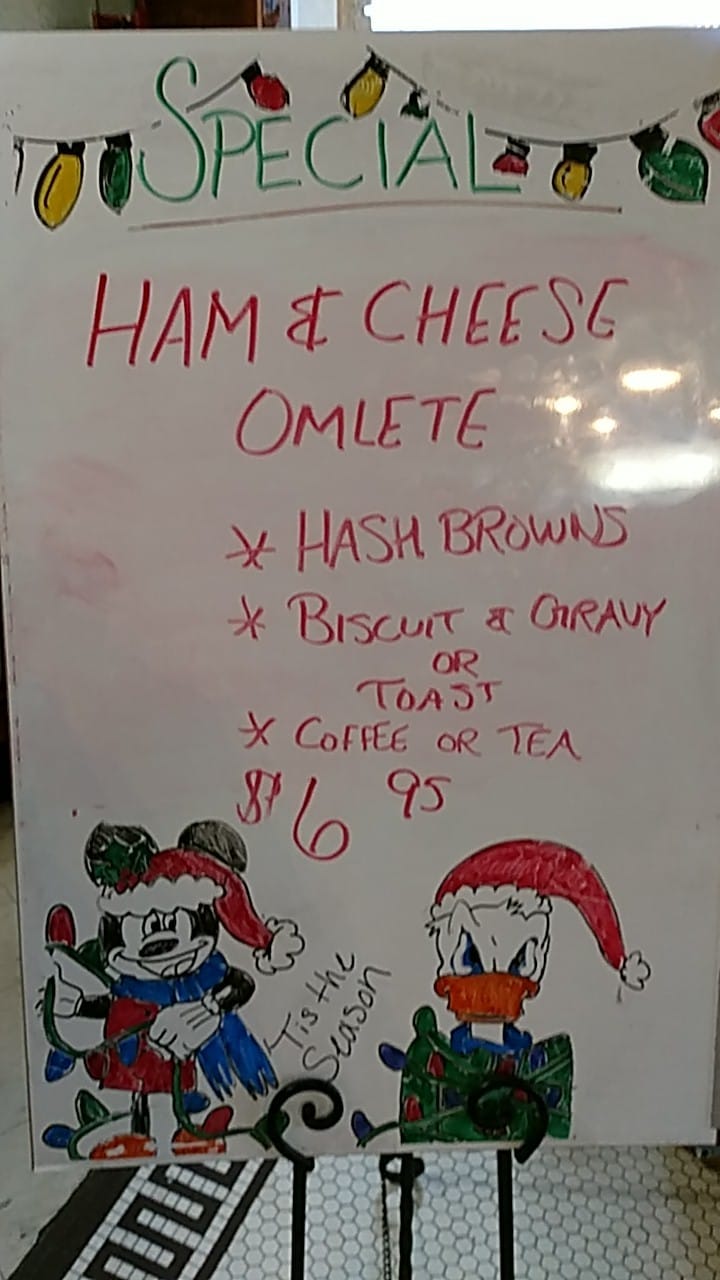 SPECIAL
HAM & CHEESE
OMLETE
* HASH BROWNS
* BISCUIT & GRAVY
OR
TOAST
* COFFEE OR TEA
$6 95
'Tis the
Season